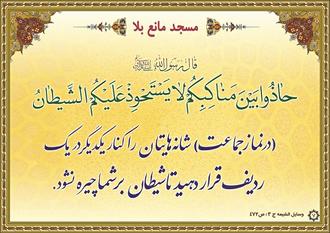 مسجد مانع بلا
قال رسول الله
حاذُوا بَينَ مَناكِبِكُم لا يَستَحوِذُ عَلَيكُمُ الشَّيطانُ
(در نماز جماعت) شانه هایتان را کنار یکدیگر در یک
ردیف قرار دهید تا شیطان بر شما چیره نشود.
وسایل الشیعه ج ۳؛ ص ۴۷۲